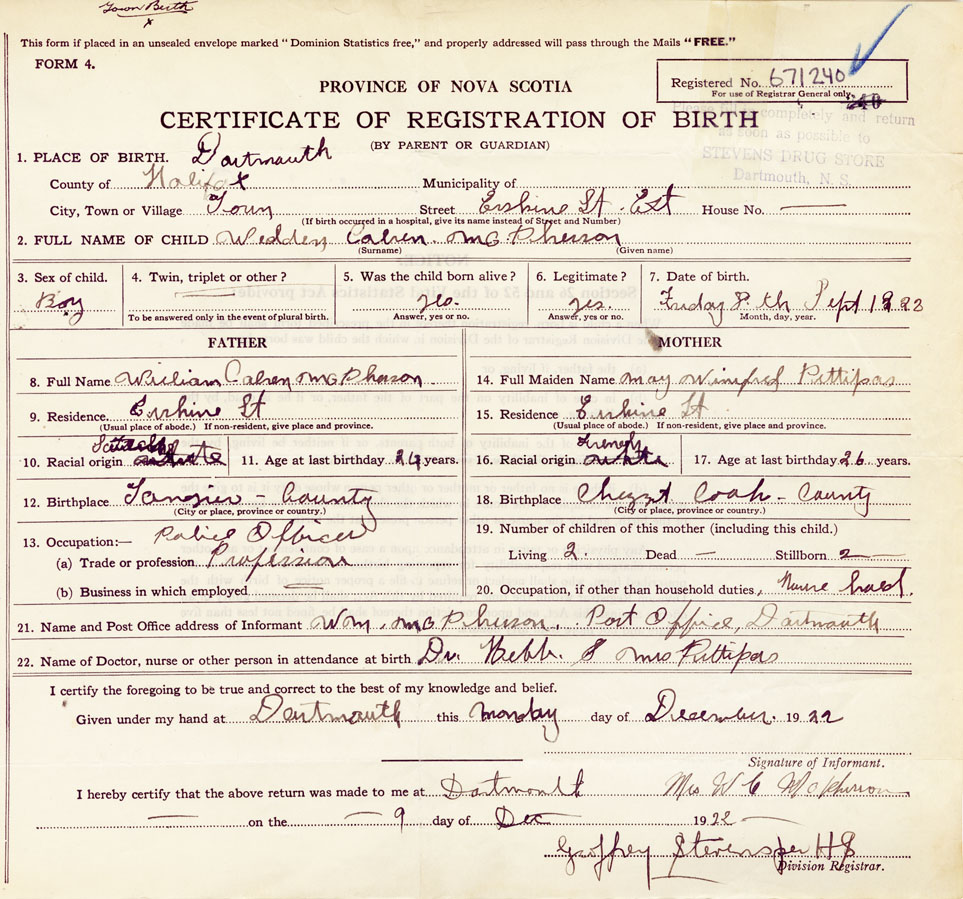 Town Birth
x
This form if placed in an unsealed envelope marked "Dominion Statistics free," and properly addressed will pass through the Mails "FREE."
FORM 4.
PROVINCE OF NOVA SCOTIA
Registered No. 671240
For use of Registrar General only.
240
CERTIFICATE OF REGISTRATION OF BIRTH
Please fill in completely and return
as soon as possible to
STEVENS DRUG STORE
Dartmouth, N. S.
(BY PARENT OR GUARDIAN)
1. PLACE OF BIRTH. Dartmouth
County of Halifax Municipality of
City, Town or Village Town Street Erskine St. Ext House No. —
(If birth occurred in a hospital, give its name instead of Street and Number)
2. FULL NAME OF CHILD Wedden Calren McPherson
(Surname) (Given name)
3. Sex of child. 4. Twin, triplet or other? 5. Was the child born alive? 6. Legitimate? 7. Date of birth.
Boy — yes. yes. Friday 8.th Sept 1922
To be answered only in the event of plural birth. Answer, yes or no. Answer, yes or no. Month, day, year.
FATHER MOTHER
8. Full Name William Calren McPherson 14. Full Maiden Name May Winifred Pettipas
9. Residence. Erskine St 15. Residence Erskine St
(Usual place of abode.) If non-resident, give place and province. (Usual place of abode.) If non-resident, give place and province.
10. Racial origin white 11. Age at last birthday 24 years. 16. Racial origin French white 17. Age at last birthday 26 years.
12. Birthplace Tangier – County 18. Birthplace Chezzet Cook – County
(City or place, province or country.) (City or place, province or country.)
13. Occupation:— Police Officer 19. Number of children of this mother (including this child.)
(a) Trade or profession Profession Living 2. Dead — Stillborn 2 —
(b) Business in which employed — 20. Occupation, if other than household duties,
21. Name and Post Office address of Informant Wm. McPherson, Post Office, Dartmouth
22. Name of Doctor, nurse or other person in attendance at birth Dr. Hebb. & Mrs Pettipas
I certify the foregoing to be true and correct to the best of my knowledge and belief.
Given under my hand at Dartmouth this Monday day of December. 1922
Signature of Informant.
I hereby certify that the above return was made to me at Dartmouth Mrs W C McPherson
— on the — 9 day of Dec 1922 —
Geoffrey Stevens per HS
Division Registrar.